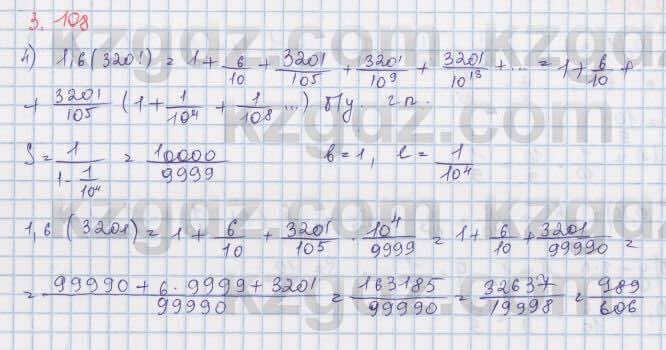 3. 108
4) 1,6(3201) = 1 + 6/10 + 3201/10^5 + 3201/10^9 + 3201/10^13 + ... = 1 + 6/10 +
+ 3201/10^5 (1 + 1/10^4 + 1/10^8 ...) г.п.
S = 1/(1 - 1/10^4) = 10000/9999 b = 1, = 1/10^4
1,6(3201) = 1 + 6/10 + 3201/10^5 · 10^4/9999 = 1 + 6/10 + 3201/99990 =
= (99990 + 6·9999 + 3201)/99990 = 163185/99990 = 32637/19998 = 989/606
kzgdz.com